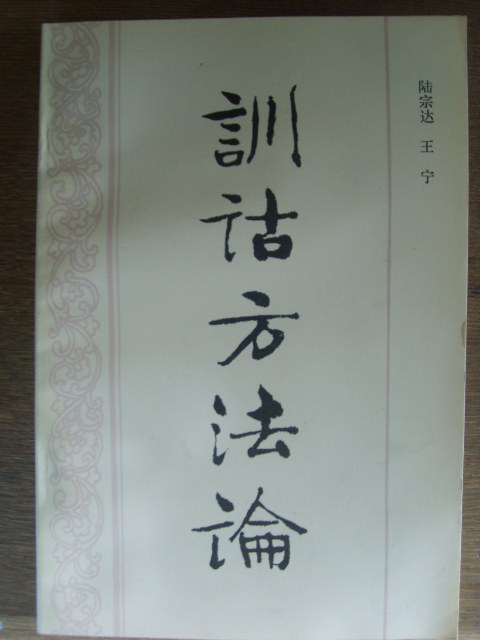 陆宗达 王宁
訓诂方法論